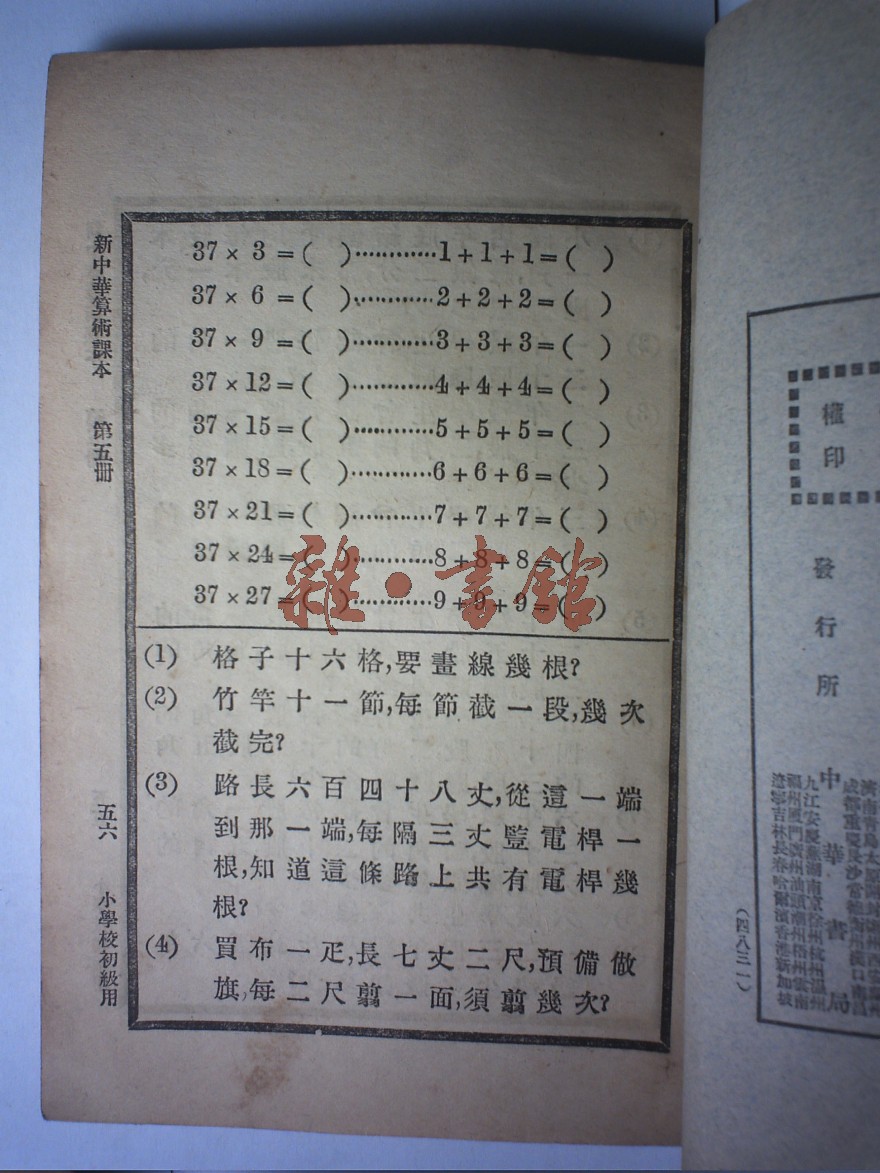 新中華算術課本 第五冊
37 × 3 = ( )············1 + 1 + 1 = ( )
37 × 6 = ( )············2 + 2 + 2 = ( )
37 × 9 = ( )············3 + 3 + 3 = ( )
37 × 12 = ( )············4 + 4 + 4 = ( )
37 × 15 = ( )············5 + 5 + 5 = ( )
37 × 18 = ( )············6 + 6 + 6 = ( )
37 × 21 = ( )············7 + 7 + 7 = ( )
37 × 24 = ( )············8 + 8 + 8 = ( )
37 × 27 = ( )············9 + 9 + 9 = ( )
雜·書館
(1) 格子十六格,要畫線幾根?
(2) 竹竿十一節,每節截一段,幾次
截完?
(3) 路長六百四十八丈,從這一端
到那一端,每隔三丈豎電桿一
根,知道這條路上共有電桿幾
根?
(4) 買布一疋,長七丈二尺,預備做
旗,每二尺剪一面,須剪幾次?
五六 小學校初級用
權印
發行所 中華書局
(四八三一)